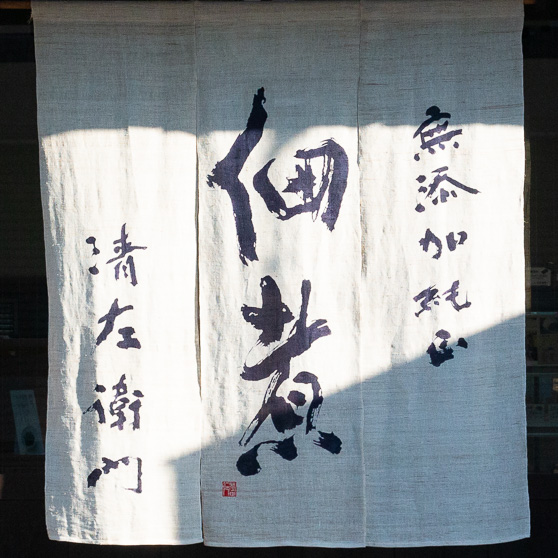 無添加純正
佃煮
清左衛門